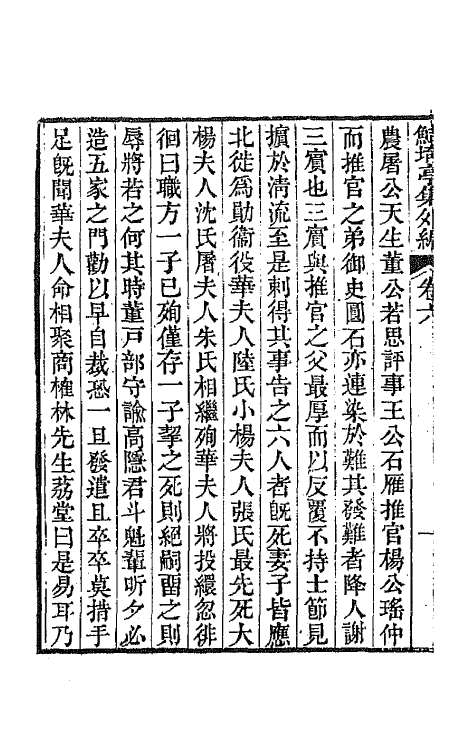 鮚埼亭集外編 卷六 一
農屠公天生董公若思評事王公石雁推官楊公瑤仲
而推官之弟御史圓石亦連染於難其發難者降人謝
三賓也三賓與推官之父最厚而以反覆不持士節見
擯於清流至是刺得其事告之六人者旣死妻子皆應
北徙為勛衞役華夫人陸氏小楊夫人張氏最先死大
楊夫人沈氏屠夫人朱氏相繼殉華夫人將投繯忽徘
徊曰職方一子已殉僅存一子挈之死則絕嗣畱之則
辱將若之何其時董戸部守諭高隱君斗魁輩昕夕必
造五家之門勸以早自裁恐一旦發遣且卒卒莫措手
足旣聞華夫人命相聚商榷林先生荔堂曰是易耳乃